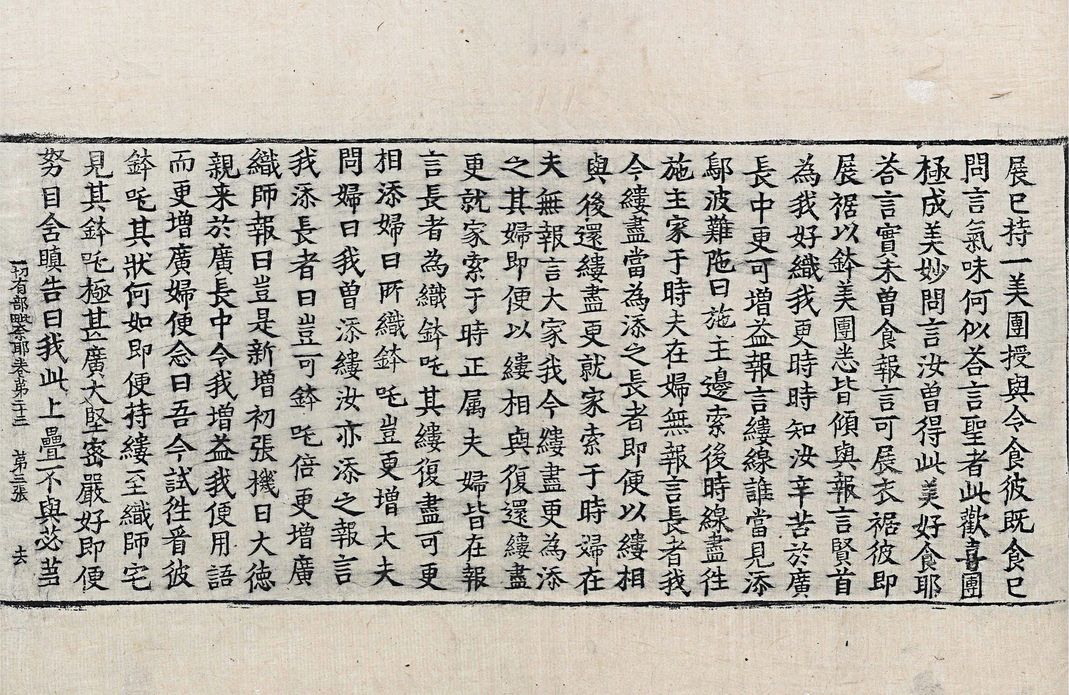 展已持一美團授與令食彼既食已
問言氣味何似荅言聖者此歡喜團
極成美妙問言汝曾得此美好食耶
荅言實未曾食報言可展衣裾彼即
展裾以鉢美團悉皆傾與報言賢首
為我好織我更時時知汝辛苦於廣
長中更可增益報言縷線誰當見添
鄔波難陁曰施主邊索後時線盡往
施主家于時夫在婦無報言長者我
今縷盡當為添之長者即便以縷相
與後還縷盡更就家索于時婦在
夫無報言大家我今縷盡更為添
之其婦即便以縷相與復還縷盡
更就家索于時正属夫婦皆在報
言長者為織鉢吒其縷復盡可更
相添婦曰所織鉢吒豈更增大夫
問婦曰我曾添縷汝亦添之報言
我添長者曰豈可鉢吒倍更增廣
織師報曰豈是新增初張機日大德
親来於廣長中令我增益我便用語
而更增廣婦便念曰吾今試徃看彼
鉢吒其狀何如即便持縷至織師宅
見其鉢吒極甚廣大堅密嚴好即便
努目含瞋告曰我此上疊不與苾芻
一切有部毗奈耶卷第二十三 第三張 去